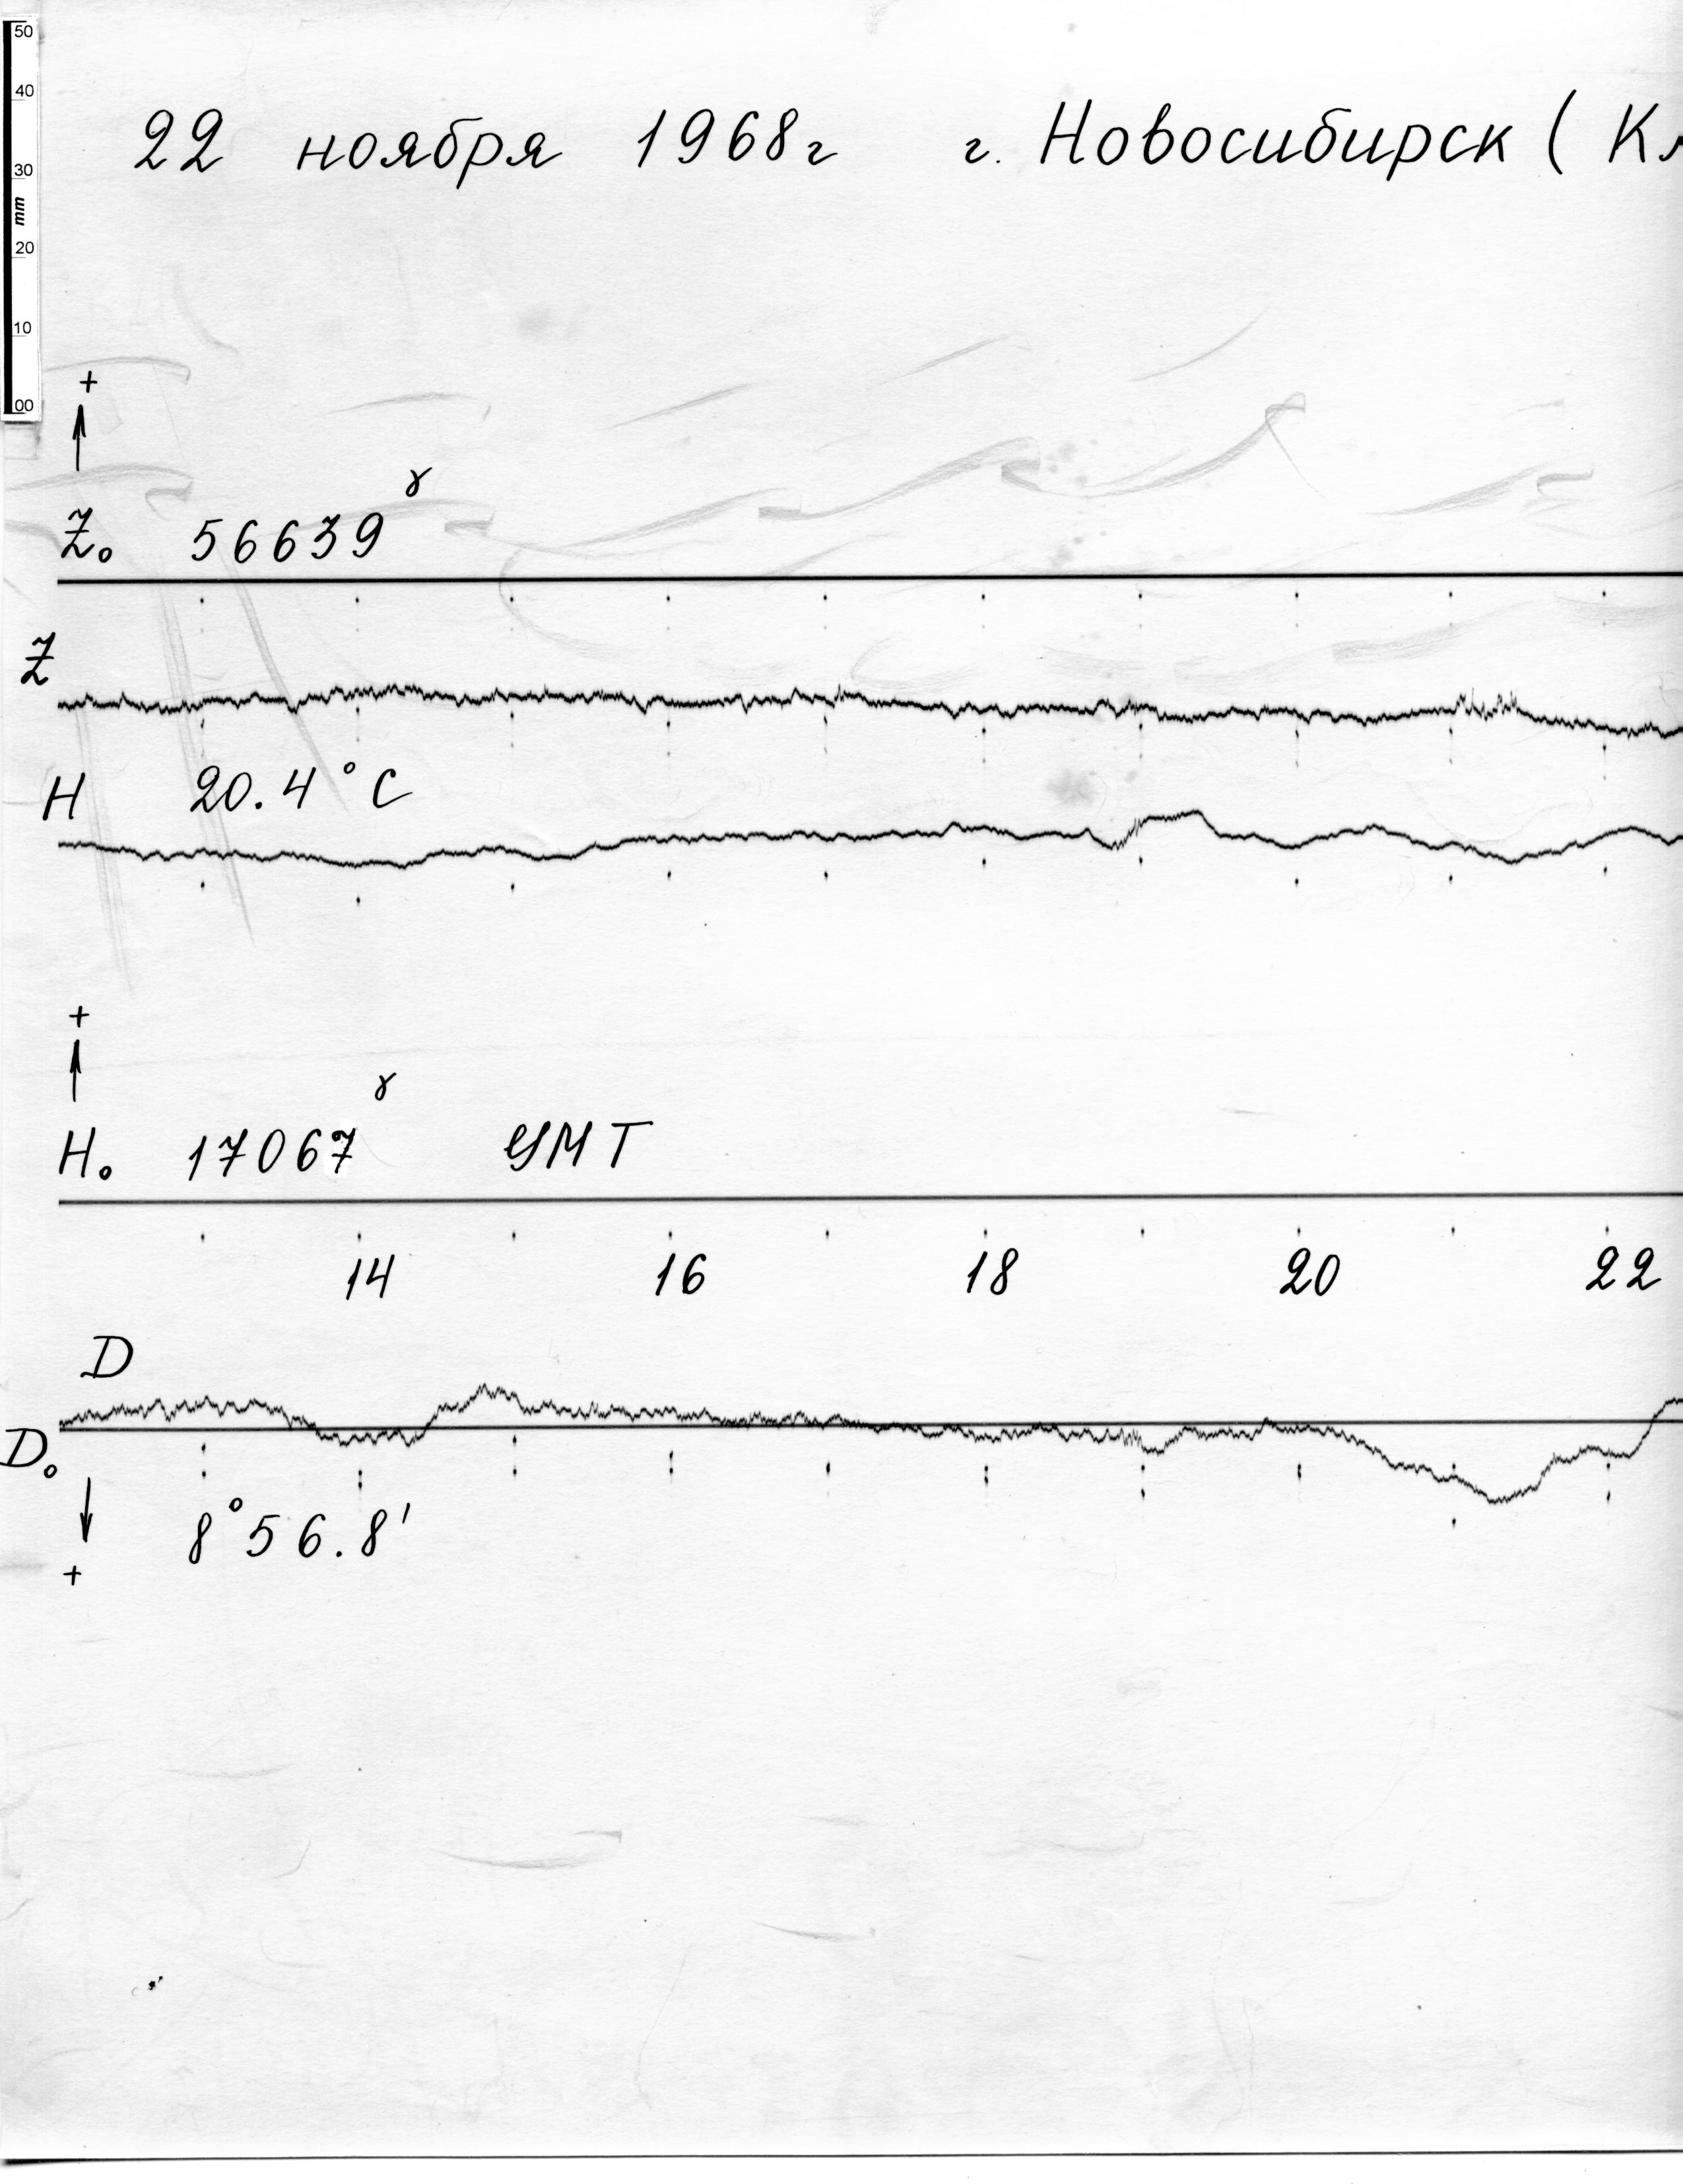 50
40
30
mm
20
10
00
22 ноября 1968г г. Новосибирск (
+
γ
Z₀ 56639
Z
H 20.4°C
+
γ
H₀ 17067 УМТ
14 16 18 20 22
D
D₀
8°56.8'
+